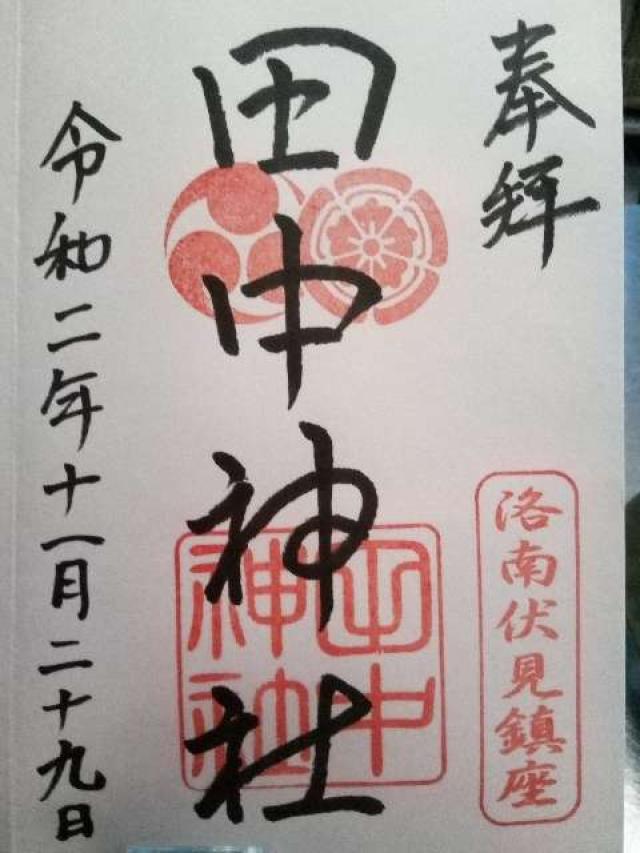 奉拝
洛南伏見鎮座
田中神社
田中
神社
令和二年十一月二十九日